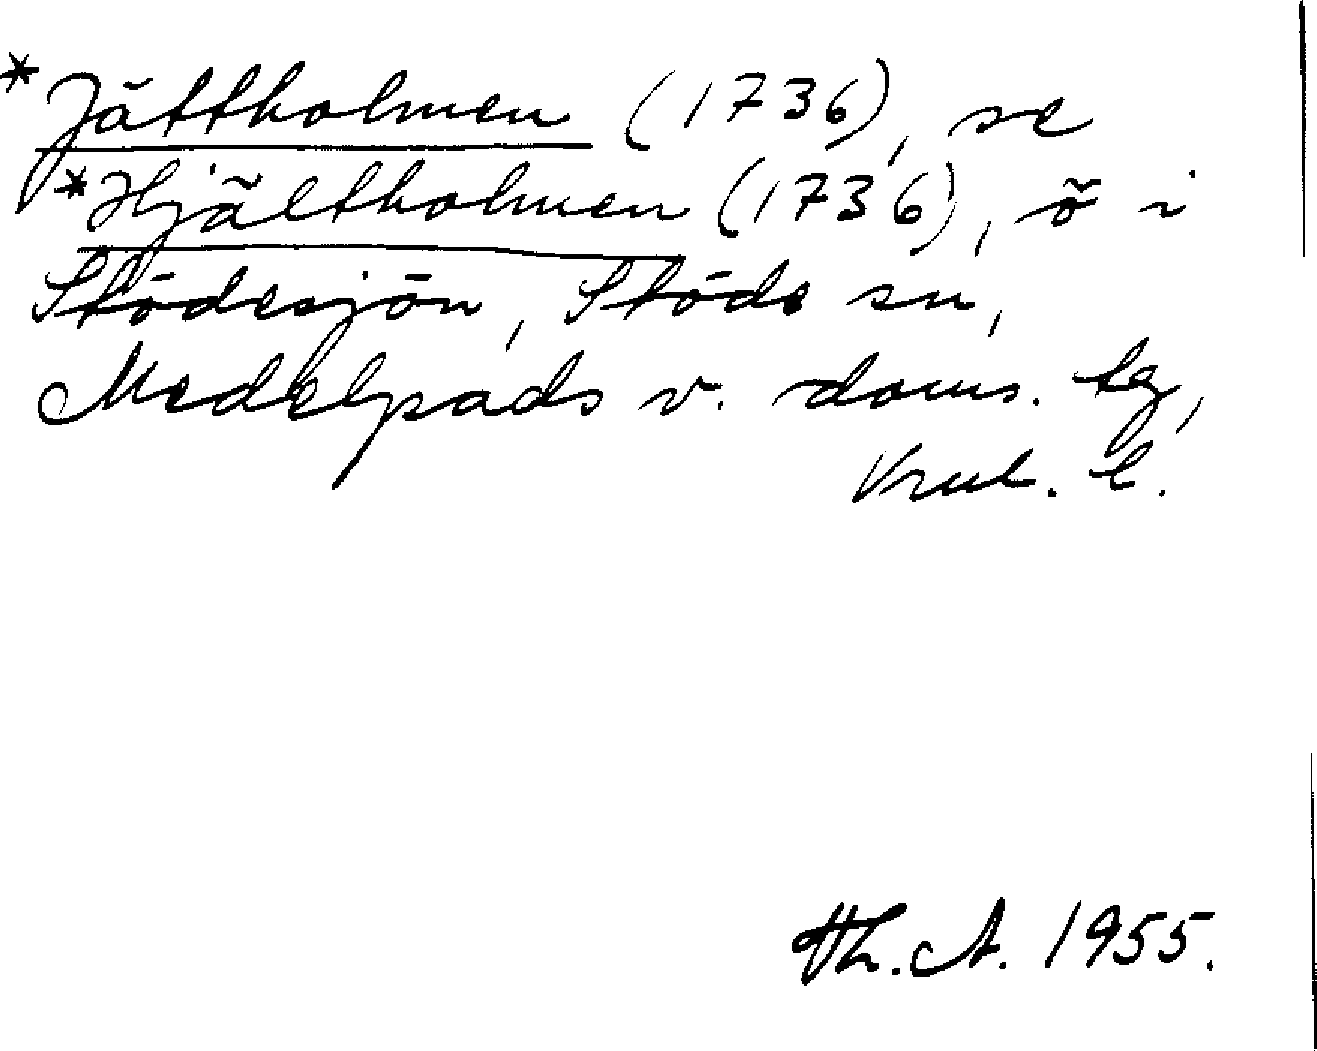 *Jättholmen (1736), se
*Hjältholmen (1736), ö i
Stödesjön, Stöde sn,
Medelpads v. doms. tg,
Vnl. l.
Th. A. 1955.